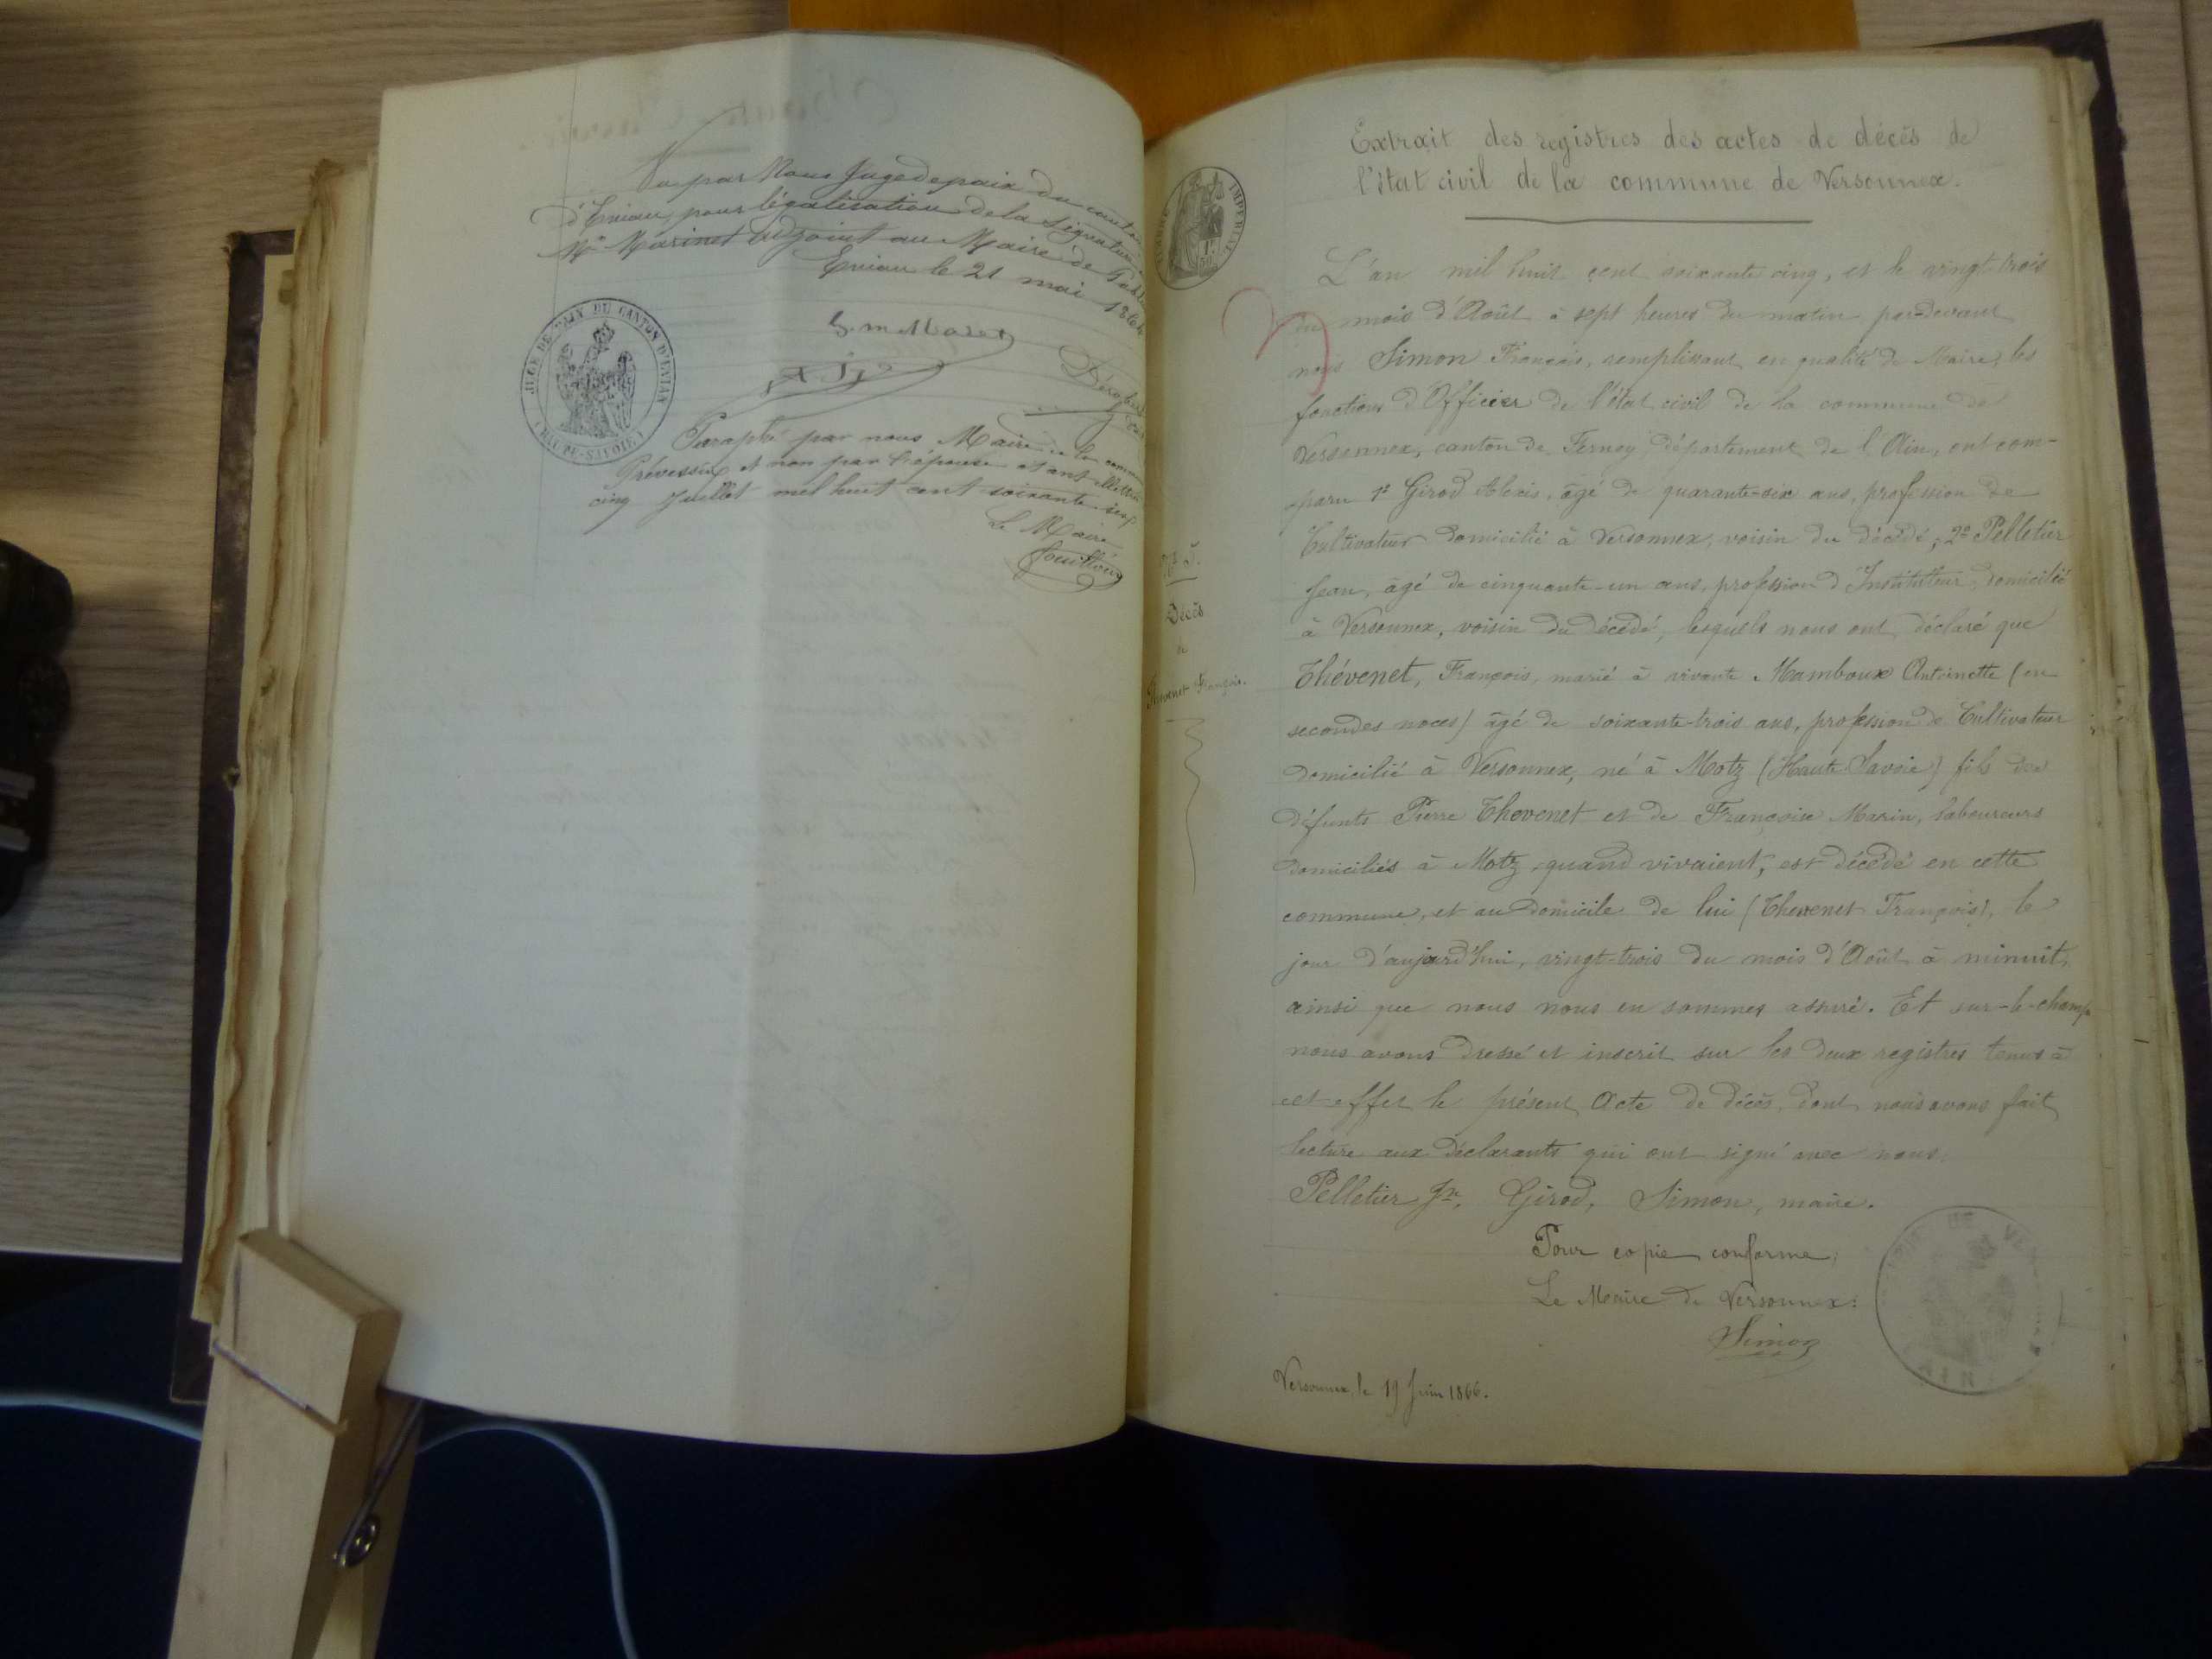 Vu par Nous Juge de paix du canton
d'Evian, pour légalisation de la signature
Mr Marinet adjoint au Maire de
Evian le 21 mai 1864
JUGE DE PAIX DU CANTON D'EVIAN
(HAUTE-SAVOIE)
Paraphé par nous Maire de la
Prévessin et non par l'épouse étant
cinq Juillet mil huit cent soixante
Le Maire
TIMBRE IMPERIAL
1F
50C
Extrait des registres des actes de décès de
l'état civil de la commune de Versonnex.
L'an mil huit cent soixante cinq, et le vingt trois
du mois d'Août à sept heures du matin par-devant
nous Simon François, remplissant en qualité de Maire, les
fonctions d'Officier de l'état civil de la commune de
Versonnex, canton de Ferney, département de l'Ain, ont com-
paru 1º Girod Alexis, âgé de quarante-six ans, profession de
Cultivateur domicilié à Versonnex, voisin du décédé, 2º Pelletier
Jean, âgé de cinquante-un ans, profession d'Instituteur, domicilié
à Versonnex, voisin du décédé, lesquels nous ont déclaré que
Thévenet, François, marié à vivante Mamboux Antoinette (en
secondes noces) âgé de soixante-trois ans, profession de Cultivateur
domicilié à Versonnex, né à Motz (Haute Savoie) fils des
défunts Pierre Thevenet et de Françoise Marin, laboureurs
domiciliés à Motz quand vivaient, est décédé en cette
commune, et au domicile de lui (Thevenet François), le
jour d'aujourd'hui, vingt-trois du mois d'Août à minuit,
ainsi que nous nous en sommes assuré. Et sur-le-champ
nous avons dressé et inscrit sur les deux registres tenus à
cet effet le présent Acte de décès, dont nous avons fait
lecture aux déclarants qui ont signé avec nous.
Pelletier Jn, Girod, Simon, maire.
Pour copie conforme,
Le Maire de Versonnex:
Simon
Versonnex, le 19 Juin 1866.
Nº 5.
Décès
de
Thévenet François.